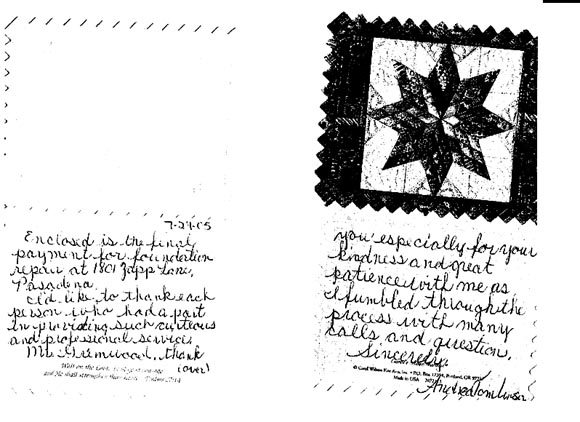 7-29-05
Enclosed is the final
payment for foundation
repair at 1801 Zapp Lane,
Pasadena.
I'd like to thank each
person who had a part
in providing such courteous
and professional service.
Mr. Grimwood, thank
(over)
Wait on the Lord; be of good courage
and He shall strengthen thine heart. Psalms 27:14
you especially for your
kindness and great
patience with me as
I fumbled through the
process with many
calls and question.
Sincerely,
© Carol Wilson Fine Arts, Inc. • P.O. Box Portland, OR
Made in USA
Andrea Tomlinson